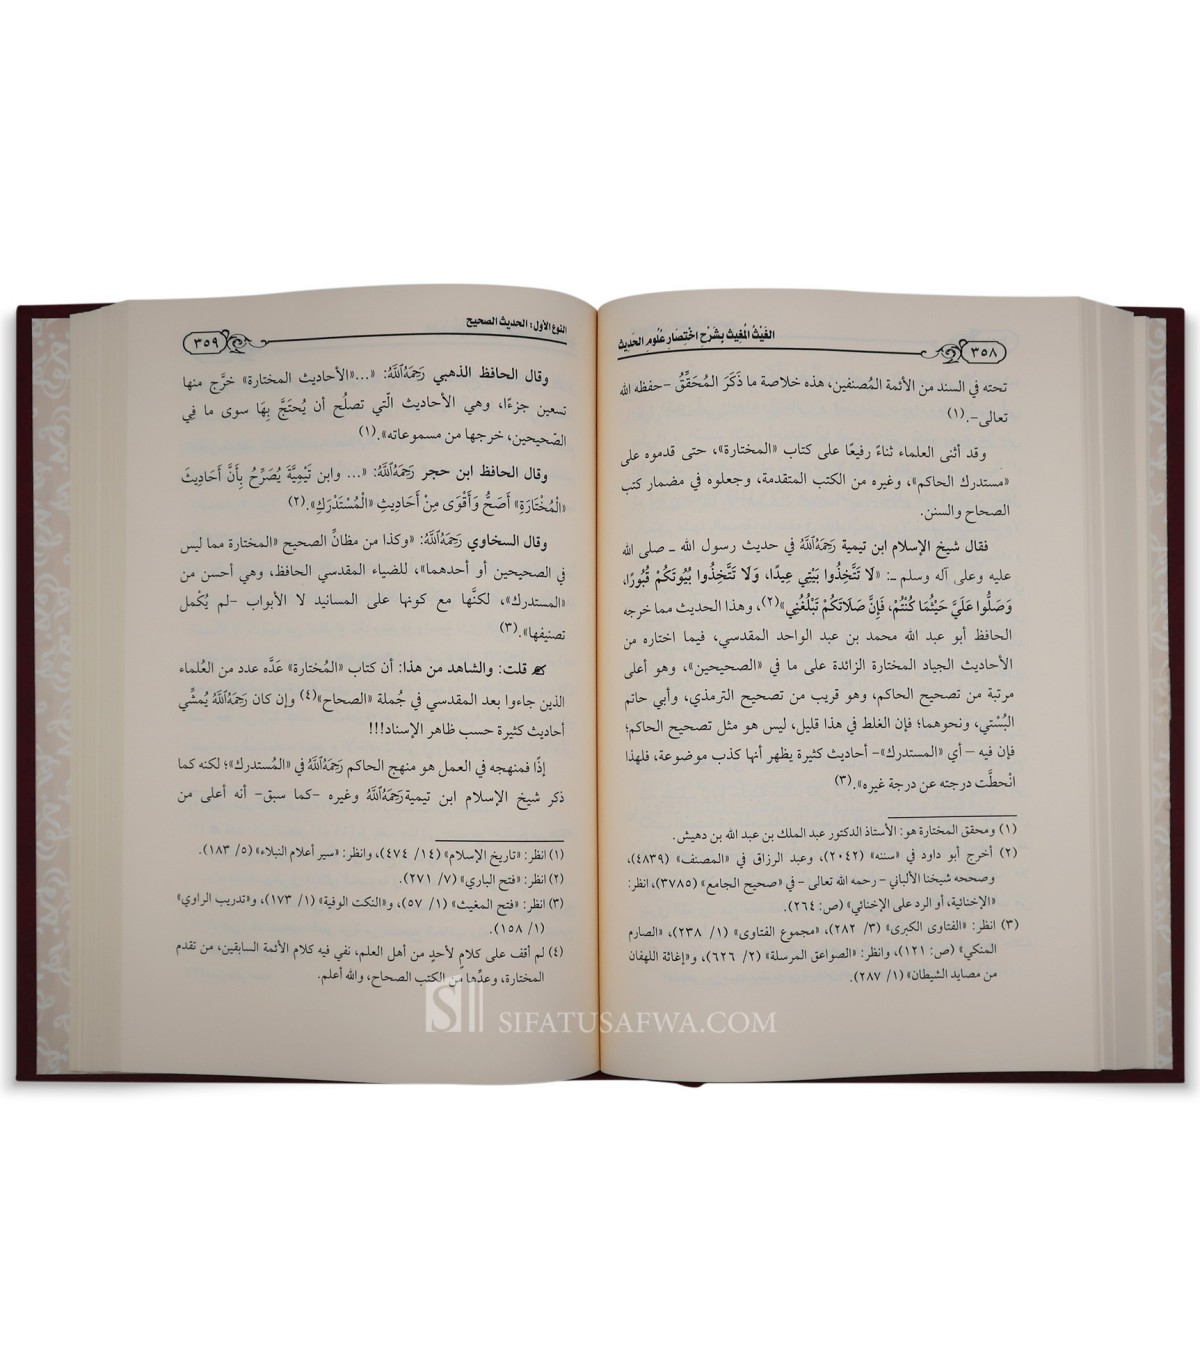 الغَيْثُ المُغِيث بِشَرْحِ اخْتِصَارِ عُلُومِ الحَدِيث
٣٥٨
تحته في السند من الأئمة المُصنفين، هذه خلاصة ما ذَكَرَ المُحَقِّقُ –حفظه الله
تعالى–.(١)
وقد أثنى العلماء ثناءً رفيعًا على كتاب «المختارة»، حتى قدموه على
«مستدرك الحاكم»، وغيره من الكتب المتقدمة، وجعلوه في مضمار كتب
الصحاح والسنن.
فقال شيخ الإسلام ابن تيمية رَحِمَهُ ٱللَّهُ في حديث رسول الله ـ صلى الله
عليه وعلى آله وسلم ـ: «لا تَتَّخِذُوا بَيْتِي عِيدًا، وَلَا تَتَّخِذُوا بُيُوتَكُمْ قُبُورًا،
وَصَلُّوا عَلَيَّ حَيْثُمَا كُنْتُمْ، فَإِنَّ صَلَاتَكُمْ تَبْلُغُنِي»(٢)، وهذا الحديث مما خرجه
الحافظ أبو عبد الله محمد بن عبد الواحد المقدسي، فيما اختاره من
الأحاديث الجياد المختارة الزائدة على ما في «الصحيحين»، وهو أعلى
مرتبة من تصحيح الحاكم، وهو قريب من تصحيح الترمذي، وأبي حاتم
البُسْتي، ونحوهما؛ فإن الغلط في هذا قليل، ليس هو مثل تصحيح الحاكم؛
فإن فيه – أي «المستدرك»– أحاديث كثيرة يظهر أنها كذب موضوعة، فلهذا
انْحطَّت درجته عن درجة غيره».(٣)
(١) ومحقق المختارة هو: الأستاذ الدكتور عبد الملك بن عبد الله بن دهيش.
(٢) أخرج أبو داود في «سننه» (٢٠٤٢)، وعبد الرزاق في «المصنف» (٤٨٣٩)،
وصححه شيخنا الألباني – رحمه الله تعالى – في «صحيح الجامع» (٣٧٨٥)، انظر:
«الإخنائية، أو الرد على الإخنائي» (ص: ٢٦٤).
(٣) انظر: «الفتاوى الكبرى» (٣/ ٢٨٢)، «مجموع الفتاوى» (١/ ٢٣٨)، «الصارم
المنكي» (ص: ١٢١)، وانظر: «الصواعق المرسلة» (٢/ ٦٢٦)، و«إغاثة اللهفان
من مصايد الشيطان» (١/ ٢٨٧).
النوع الأول: الحديث الصحيح
٣٥٩
وقال الحافظ الذهبي رَحِمَهُ ٱللَّهُ: «...«الأحاديث المختارة» خرَّج منها
تسعين جزءًا، وهي الأحاديث الّتي تصلُح أن يُحتَجَّ بِهَا سوى ما فِي
الصّحيحين، خرجها من مسموعاته».(١)
وقال الحافظ ابن حجر رَحِمَهُ ٱللَّهُ: «... وابن تَيْمِيَّةَ يُصَرِّحُ بِأَنَّ أَحَادِيثَ
«الْمُخْتَارَةِ» أَصَحُّ وَأَقْوَى مِنْ أَحَادِيثِ «الْمُسْتَدْرَكِ».(٢)
وقال السخاوي رَحِمَهُ ٱللَّهُ: «وكذا من مظانِّ الصحيح «المختارة مما ليس
في الصحيحين أو أحدهما»، للضياء المقدسي الحافظ، وهي أحسن من
«المستدرك»، لكنَّها مع كونها على المسانيد لا الأبواب –لم يُكْمل
تصنيفها».(٣)
قلت: والشاهد من هذا: أن كتاب «المُختارة» عَدَّه عدد من العُلماء
الذين جاءوا بعد المقدسي في جُملة «الصحاح»(٤) وإن كان رَحِمَهُ ٱللَّهُ يُمشِّي
أحاديث كثيرة حسب ظاهر الإسناد!!!
إذًا فمنهجه في العمل هو منهج الحاكم رَحِمَهُ ٱللَّهُ في «المُستدرك»؛ لكنه كما
ذكر شيخ الإسلام ابن تيمية رَحِمَهُ ٱللَّهُ وغيره –كما سبق– أنه أعلى من
(١) انظر: «تاريخ الإسلام» (١٤/ ٤٧٤)، وانظر: «سير أعلام النبلاء» (٥/ ١٨٣).
(٢) انظر: «فتح الباري» (٧/ ٢٧١).
(٣) انظر: «فتح المغيث» (١/ ٥٧)، و«النكت الوفية» (١/ ١٧٣)، و«تدريب الراوي»
(١/ ١٥٨).
(٤) لم أقف على كلام لأحدٍ من أهل العلم، نفي فيه كلام الأئمة السابقين، من تقدم
المختارة، وعدِّها من الكتب الصحاح، والله أعلم.
SIFATUSAFWA.COM